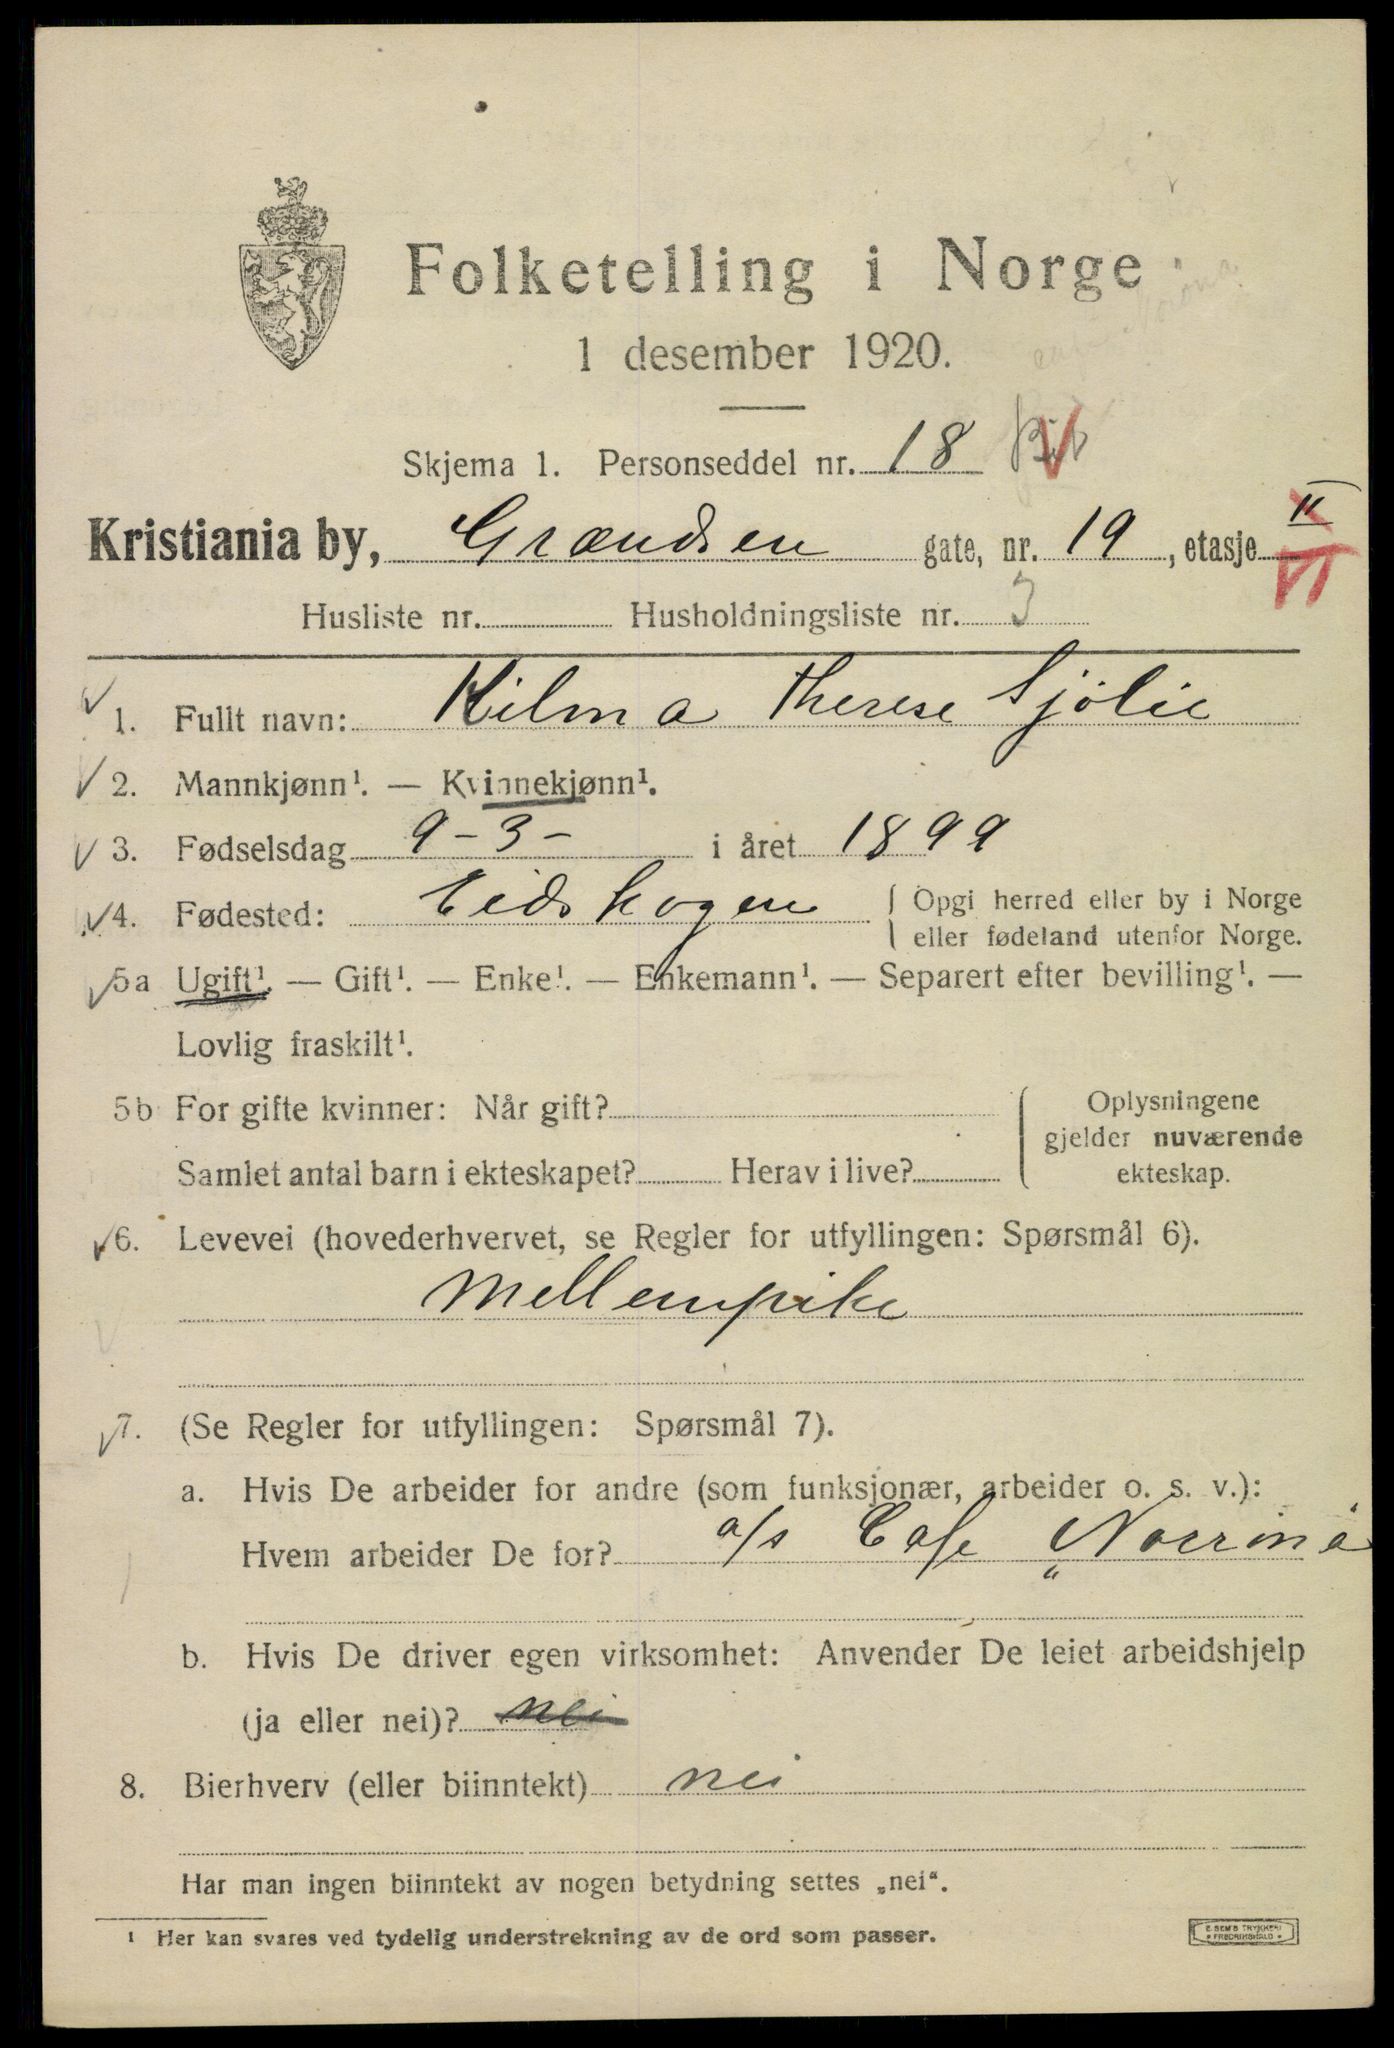 Folketelling i Norge
1 desember 1920.
Skjema 1. Personseddel nr. 18
Kristiania by, Grændsen gate, nr. 19, etasje II VI
Husliste nr. Husholdningsliste nr. 3
1. Fullt navn: Hilma Therese Sjölie
2. Mannkjønn¹. — Kvinnekjønn¹.
3. Fødselsdag 9-3- i året 1899
4. Fødested: Eidskogen { Opgi herred eller by i Norge
eller fødeland utenfor Norge.
5a Ugift¹. — Gift¹. — Enke¹. — Enkemann¹. — Separert efter bevilling¹. —
Lovlig fraskilt¹.
5b For gifte kvinner: Når gift?
Samlet antal barn i ekteskapet? Herav i live?
Oplysningene
gjelder nuværende
ekteskap.
6. Levevei (hovederhvervet, se Regler for utfyllingen: Spørsmål 6).
Mellempike
7. (Se Regler for utfyllingen: Spørsmål 7).
a. Hvis De arbeider for andre (som funksjonær, arbeider o. s. v.):
Hvem arbeider De for? a/s Cafe „Norrøna
b. Hvis De driver egen virksomhet: Anvender De leiet arbeidshjelp
(ja eller nei)? nei
8. Bierhverv (eller biinntekt) nei
Har man ingen biinntekt av nogen betydning settes „nei“.
¹ Her kan svares ved tydelig understrekning av de ord som passer.
E. SEM'S TRYKKERI
FREDRIKSHALD